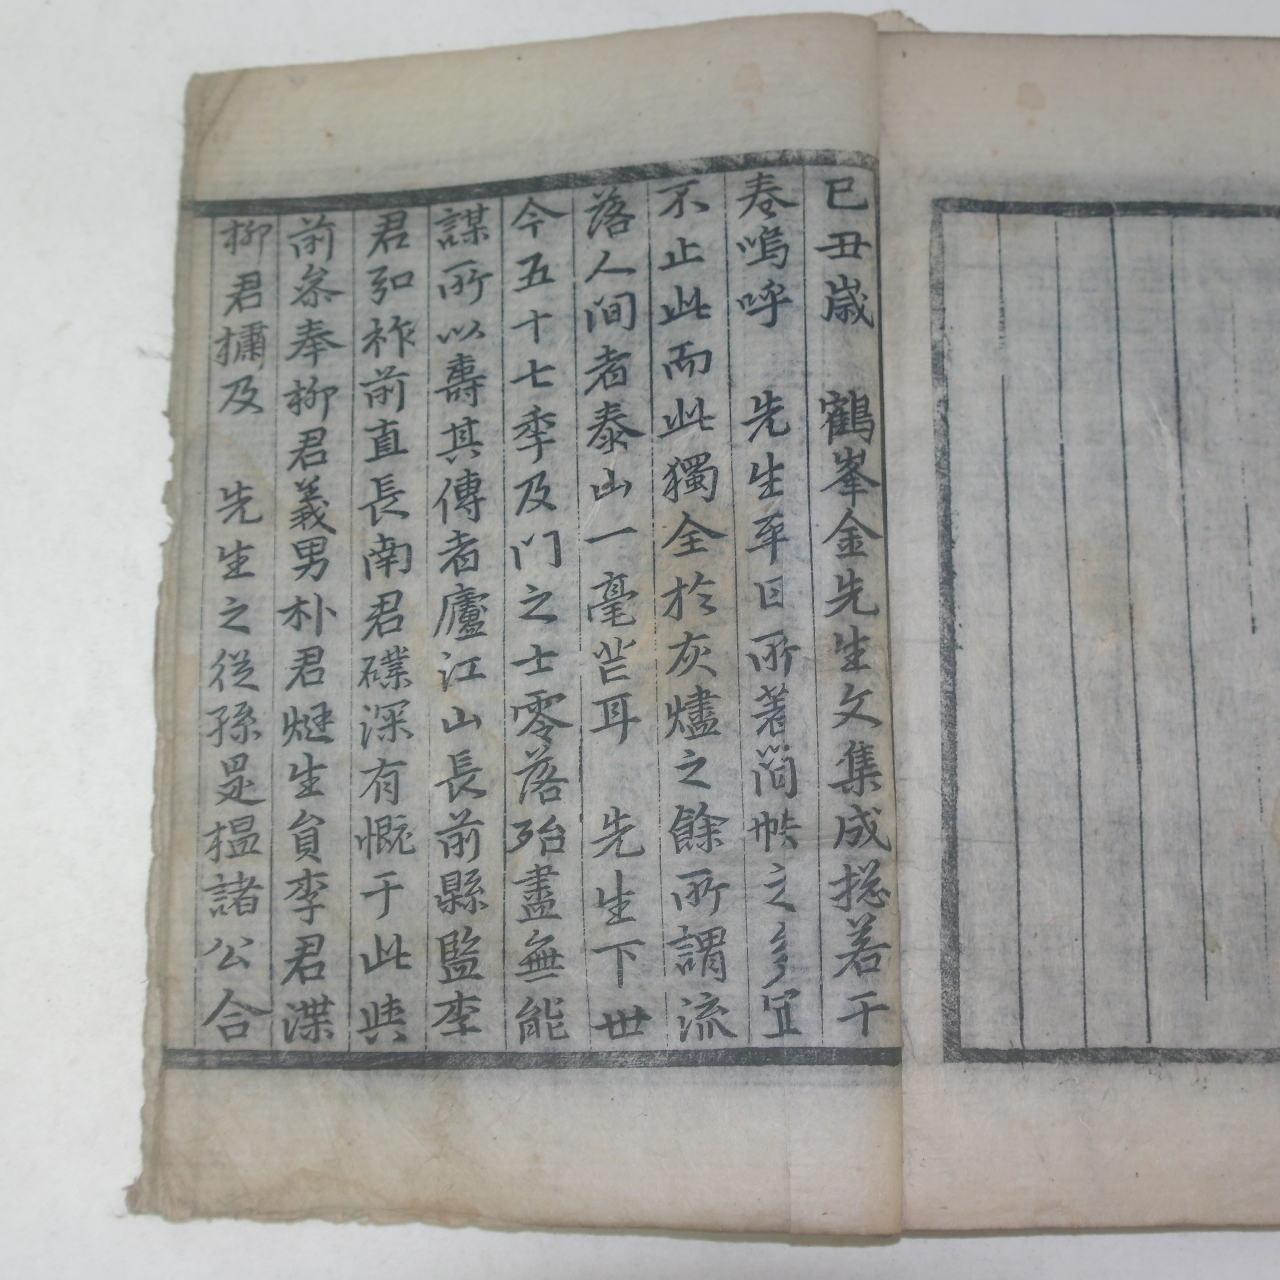 已丑歲　鶴峯金先生文集成揔若干
卷嗚呼　先生平日所著簡帙之多宜
不止此而此獨全於灰燼之餘所謂流
落人間者泰山一毫芒耳　先生下世
今五十七季及門之士零落殆盡無能
謀所以壽其傳者廬江山長前縣監李
君弘祚前直長南君磼深有慨于此與
前叅奉柳君義男朴君𤈩生員李君渫
柳君橚及　先生之從孫是榅諸公合